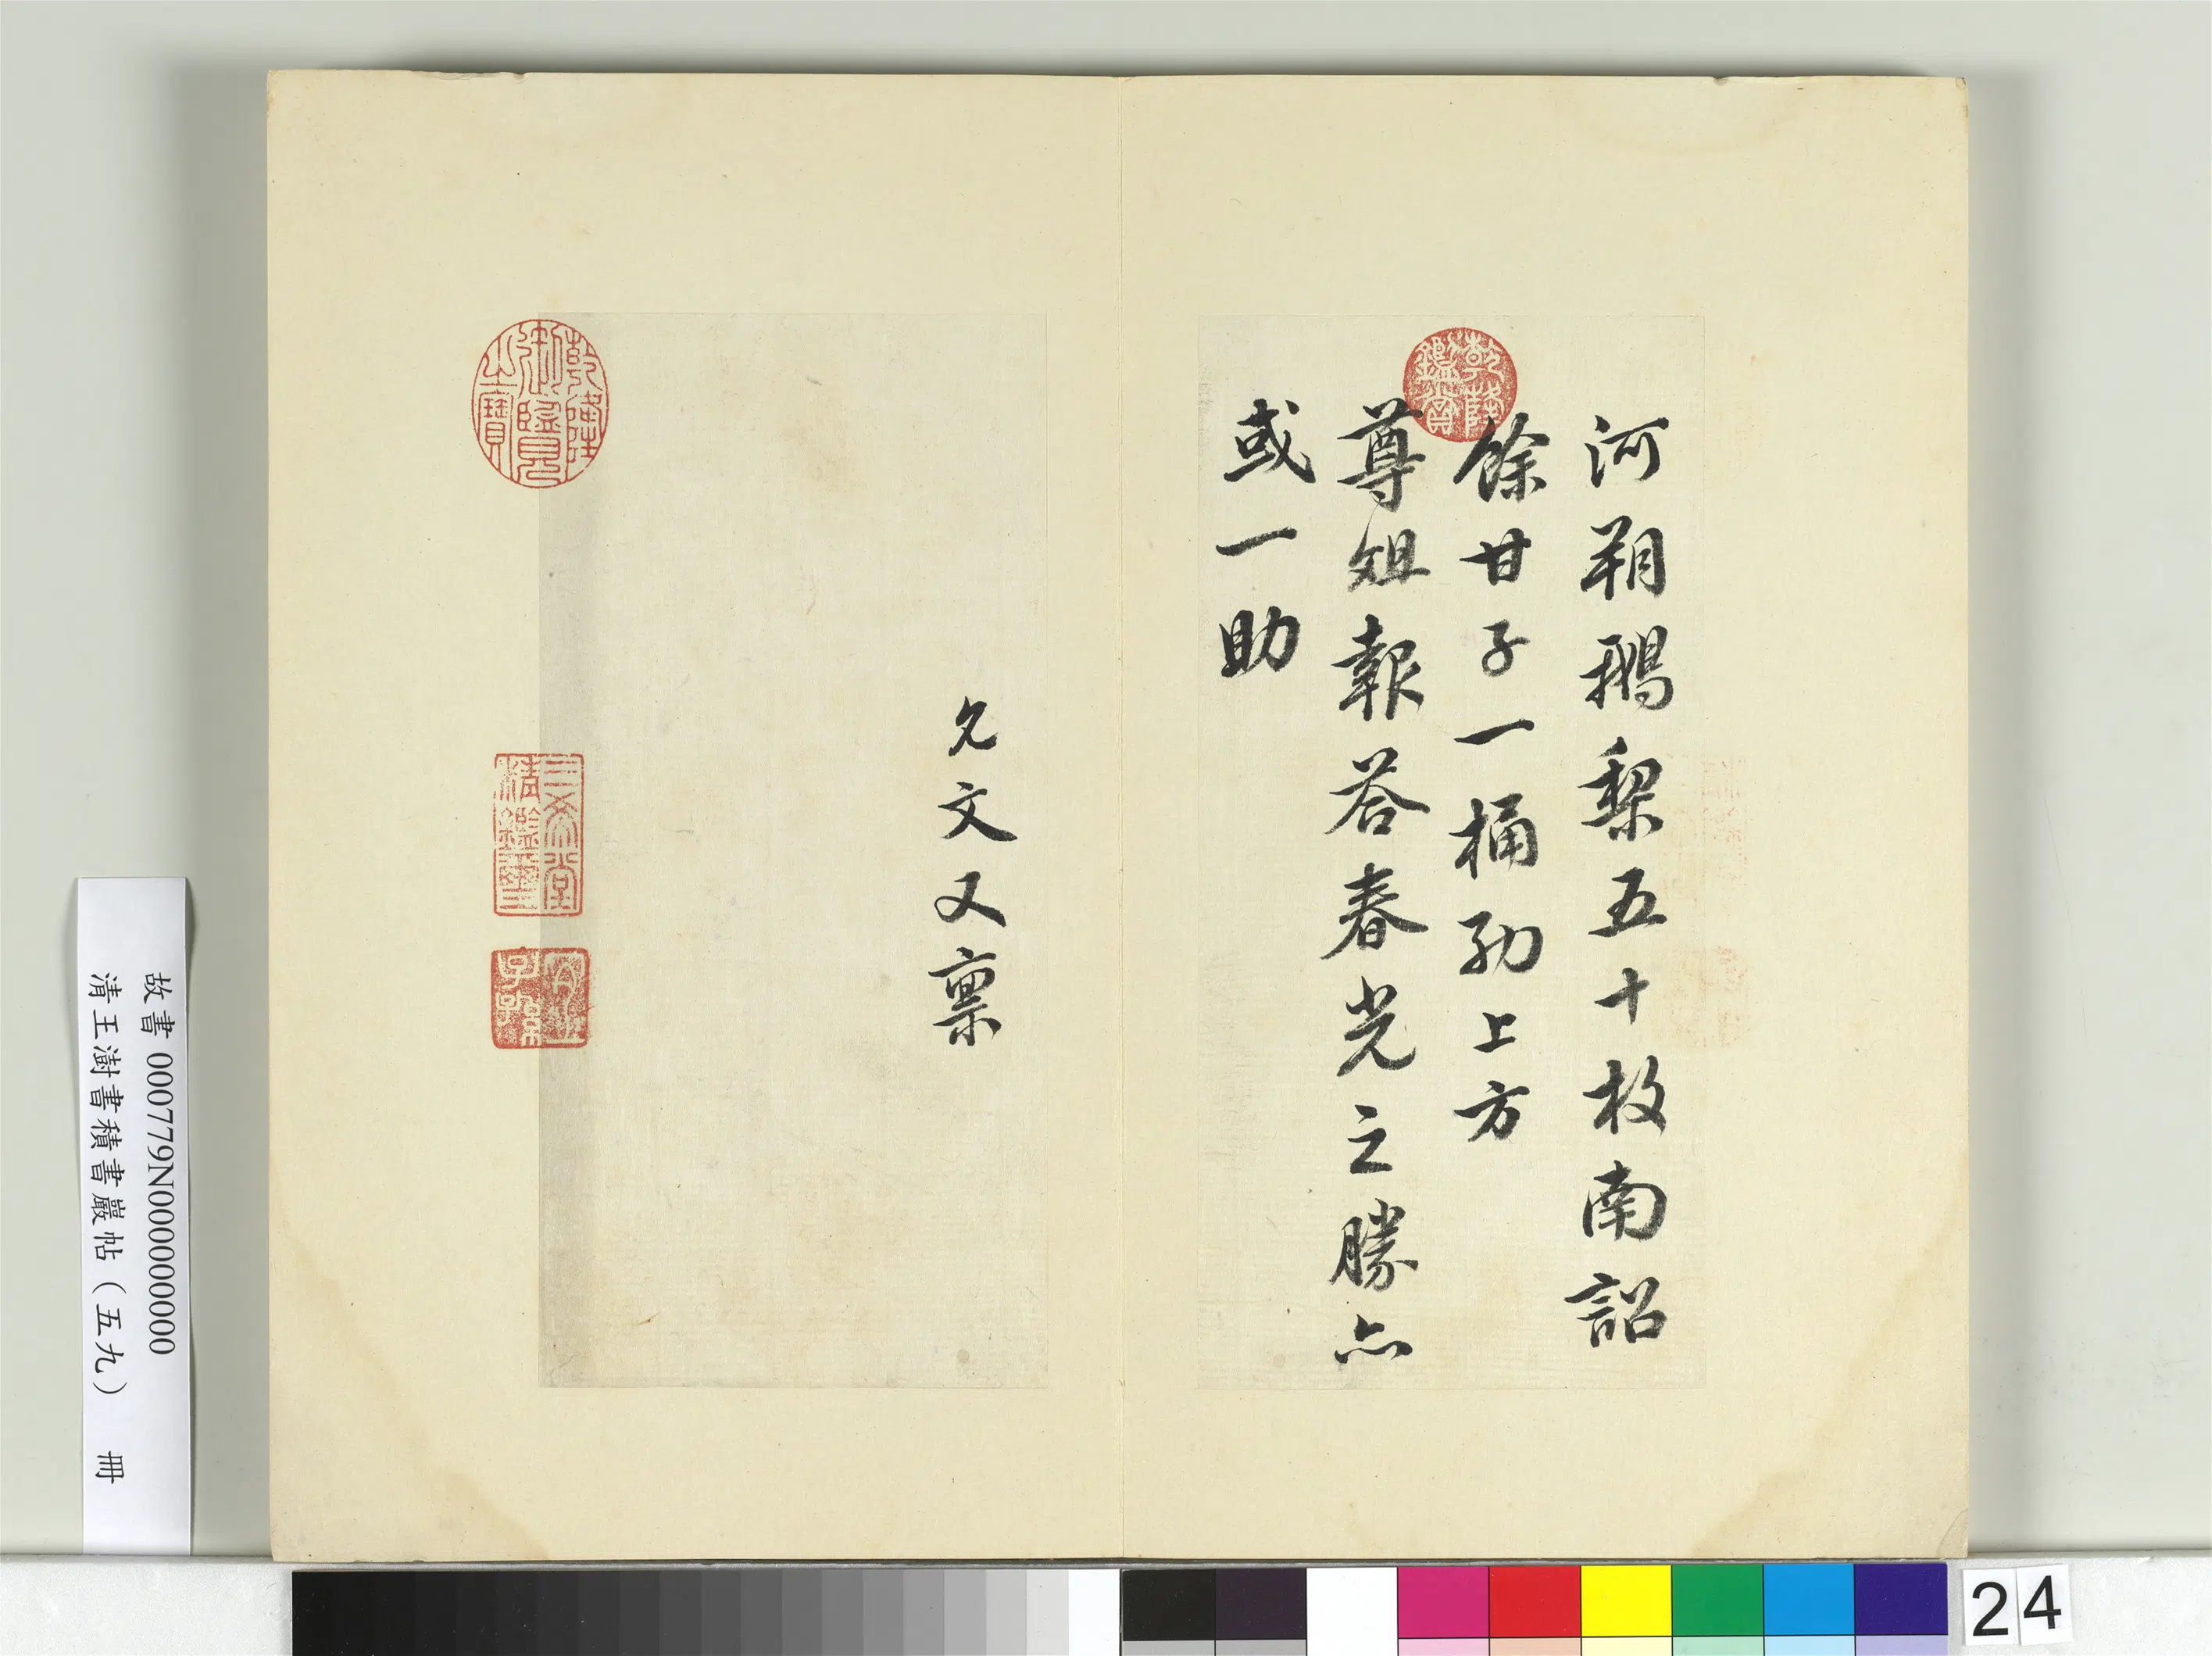 河朔鵝梨五十枚南詔
餘甘子一桶効上方
尊俎報答春光之勝亦
或一助
允文又稟
乾隆鑑賞
乾隆御覽之寶
三希堂精鑑璽
宜子孫
故書 000779N000000000
清王澍書積書巖帖（五九） 冊
24